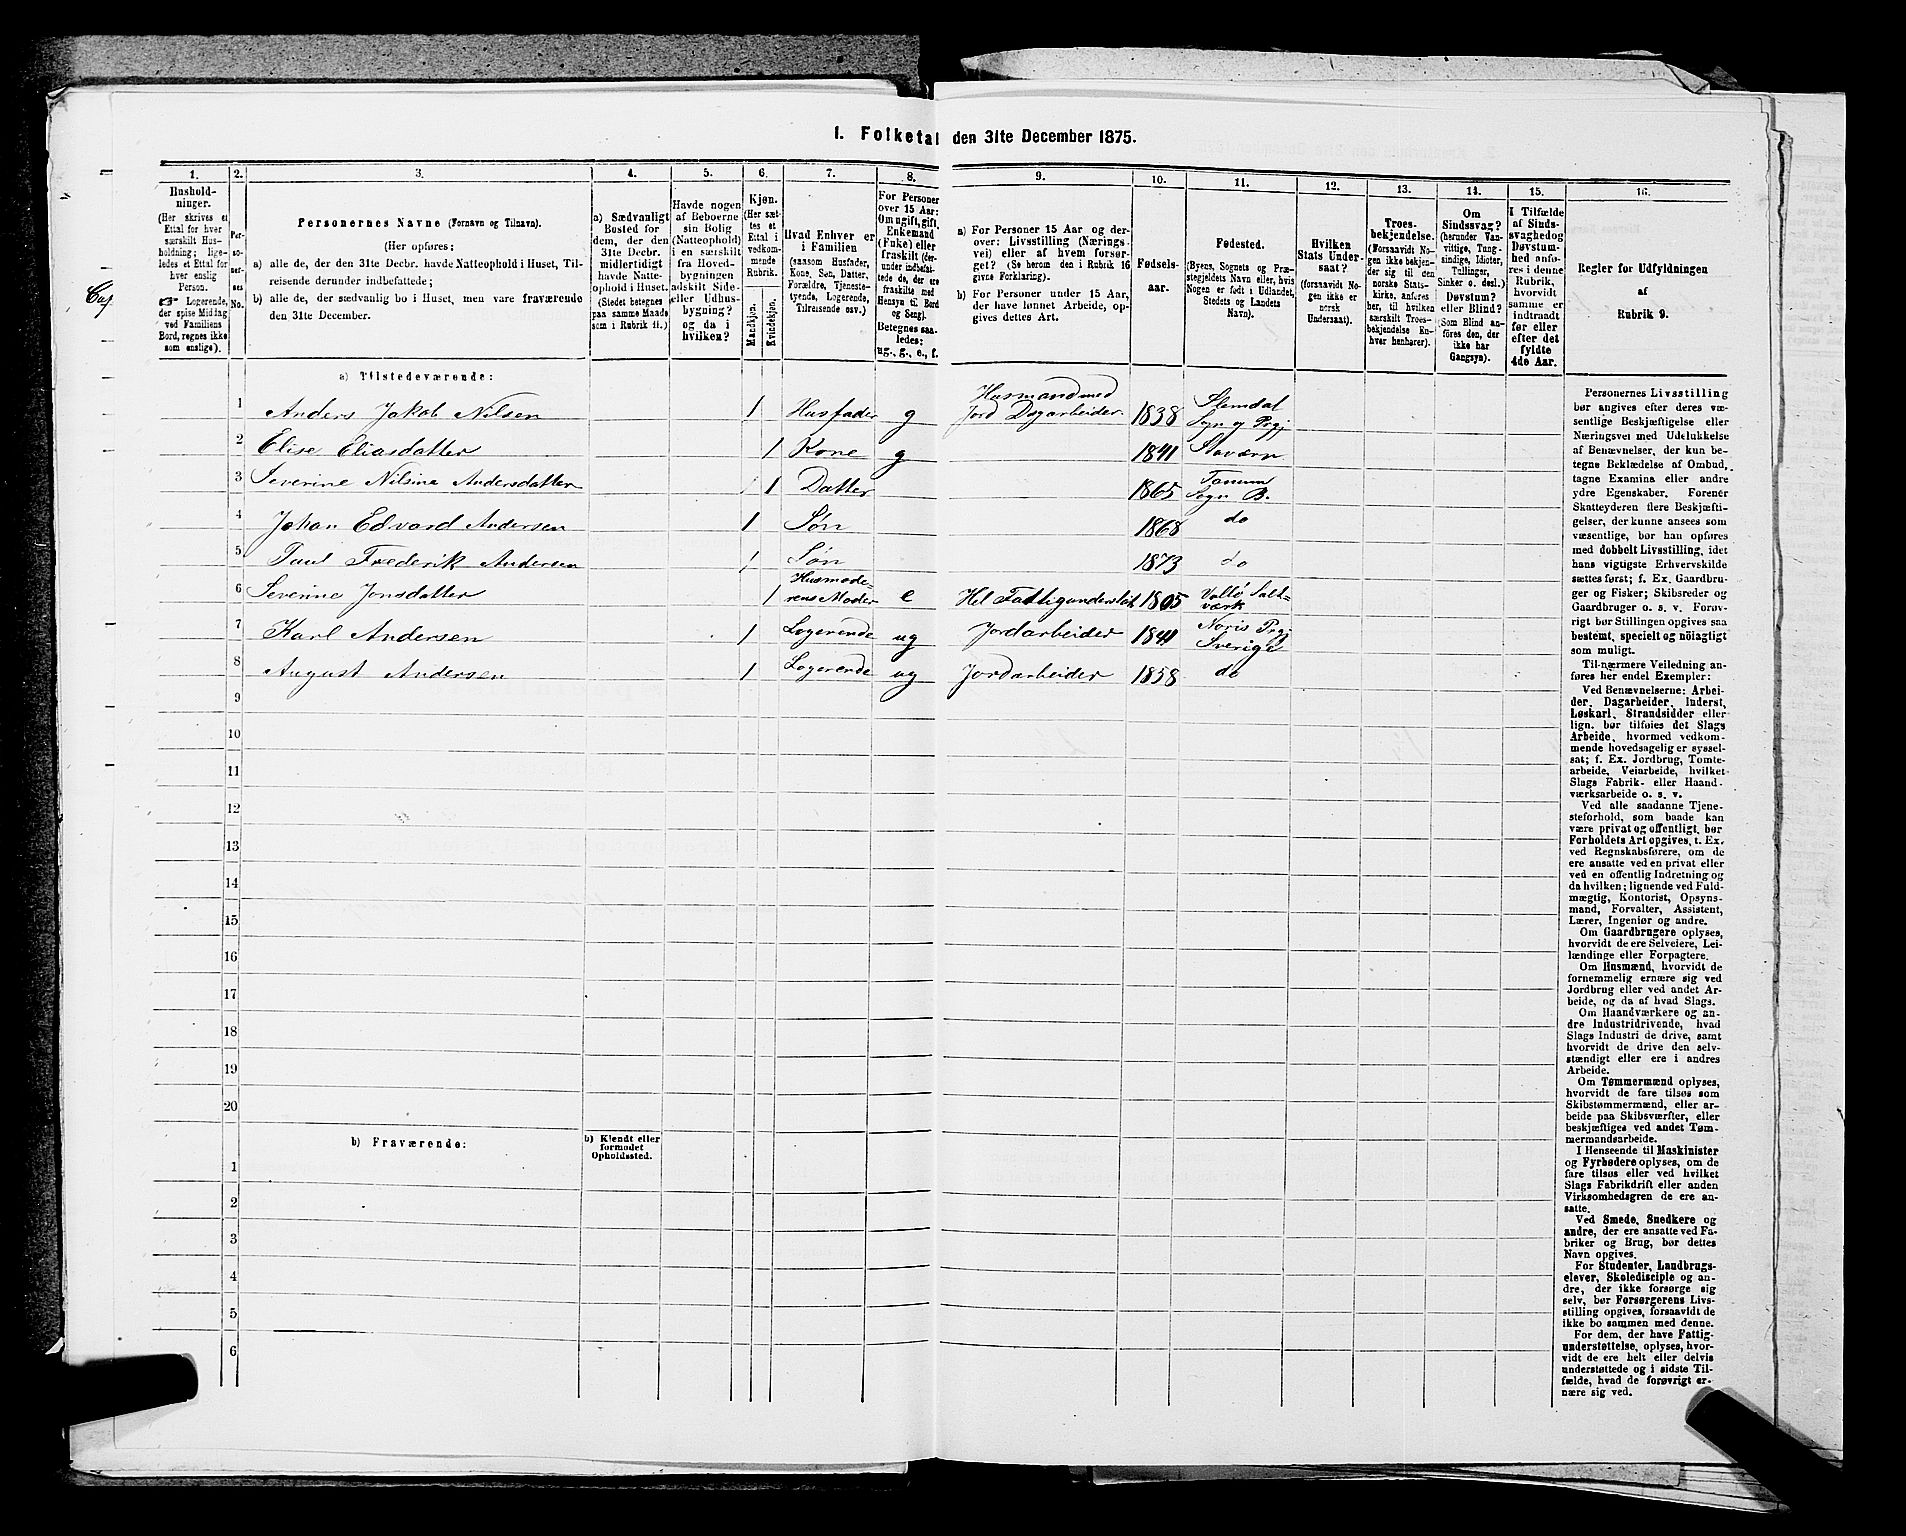 I. Folketal den 31te December 1875.
1. 2. 3. 4. 5. 6. 7. 8. 9. 10. 11. 12. 13. 14. 15. 16.
Husholdninger.
(Her skrives et
Ettal for hver
særskilt Husholdning;
ligeledes et Ettal for
hver enslig
Person.
Logerende,
der spise Middag
ved Familiens
Bord, regnes ikke
som enslige).
Personernes No.
Personernes Navne (Fornavn og Tilnavn).
(Her opføres:
a) alle de, der den 31te Decbr. havde Natteophold i Huset, Tilreisende
derunder indbefattede;
b) alle de, der sædvanlig bo i Huset, men vare fraværende
den 31te December.
a) Sædvanligt
Bosted for
dem, der den
31te Decbr.
midlertidigt
havde Natteophold
i Huset.
(Stedet betegnes
paa samme Maade
som i Rubrik 11.)
Havde nogen
af Beboerne
sin Bolig
(Natteophold)
i en særskilt
fra Hovedbygningen
adskilt Side- eller Udhusbygning?
og da i
hvilken?
Kjøn.
(Her sættes
et
Ettal i
vedkommende
Rubrik.
Mandkjøn.
Kvindekjøn.
Hvad Enhver er
i Familien
(saasom Husfader,
Kone, Søn, Datter,
Forældre, Tjenestetyende,
Logerende,
Tilreisende osv.)
For Personer
over 15 Aar:
Om ugift, gift,
Enkemand
(Enke) eller
fraskilt
Betegnes saaledes:
ug., g., e., f.
a) For Personer 15 Aar og derover:
Livsstilling (Næringsvei)
eller af hvem forsørget?
(Se herom den i Rubrik 16
givne Forklaring).
b) For Personer under 15 Aar,
der have lønnet Arbeide, opgives
dettes Art.
Fødselsaar.
Fødested.
(Byens, Sognets og Præstegjeldets
Navn eller, hvis
Nogen er født i Udlandet,
Stedets og Landets
Navn).
Hvilken
Stats Undersaat?
(forsaavidt Nogen
ikke er
norsk
Undersaat).
Troesbekjendelse.
(Forsaavidt Nogen
ikke bekjender
sig til den
norske Statskirke,
anføres
her, til hvilken
særskilt Troesbekjendelse
Enhver
henhører).
Om
Sindssvag?
(herunder Vanvittige,
Tungsindige,
Idioter,
Tullinger,
Sinker o. desl.)
Døvstum?
eller Blind?
(Som Blind anføres
den, der
ikke har
Gangsyn).
I Tilfælde
af Sindssvaghed
og
Døvstumhed
anføres
i denne
Rubrik,
hvorvidt
samme er
indtraadt
før eller
efter det
fyldte
4de Aar.
Regler for Udfyldningen
af
Rubrik 9.
a) Tilstedeværende:
1 Anders Jakob Nilsen 1 Husfader g Husmand med Jord Dagarbeider 1838 Slemdal Sogn og Prgj
2 Elise Eliasdatter 1 Kone g 1841 Staværn
3 Severine Nilsine Andersdatter 1 Datter 1865 Tanum Sogn B.
4 Johan Edvard Andersen 1 Søn 1868 do
5 Paul Frederik Andersen 1 Søn 1873 do
6 Severine Jonsdatter 1 Husmoderens Moder e Hel Fattigunderstøt 1805 Vallø Saltværk
7 Karl Andersen 1 Logerende ug Jordarbeider 1841 Noris Prgj Sverige
8 August Andersen 1 Logerende ug Jordarbeider 1858 do
9
10
11
12
13
14
15
16
17
18
19
20
b) Fraværende: b) Kjendt eller
formodet
Opholdssted.
1
2
3
4
5
6
Personernes Livsstilling
bør angives efter deres væsentlige
Beskjæftigelse eller
Næringsvei med Udelukkelse
af Benævnelser, der kun betegne
Beklædelse af Ombud,
tagne Examina eller andre
ydre Egenskaber. Forener
Skatteyderen flere Beskjæftigelser,
der kunne ansees som
væsentlige, bør han opføres
med dobbelt Livsstilling, idet
hans vigtigste Erhvervskilde
sættes først; f. Ex. Gaardbruger
og Fisker; Skibsreder og
Gaardbruger o. s. v. Forøvrigt
bør Stillingen opgives saa
bestemt, specielt og nøiagtigt
som muligt.
Til nærmere Veiledning anføres
her endel Exempler:
Ved Benævnelserne: Arbeider,
Dagarbeider, Inderst,
Løskarl, Strandsidder eller
lign. bør tilføies det Slags
Arbeide, hvormed vedkommende
hovedsagelig er sysselsat;
f. Ex. Jordbrug, Tomtearbeide,
Veiarbeide, hvilket
Slags Fabrik- eller Haandværksarbeide
o. s. v.
Ved alle saadanne Tjenesteforhold,
som baade kan
være privat og offentligt, bør
Forholdets Art opgives, t. Ex.
ved Regnskabsførere, om de
ere ansatte ved en privat eller
ved en offentlig Indretning og
da hvilken; lignende ved Fuldmægtig,
Kontorist, Opsynsmand,
Forvalter, Assistent,
Lærer, Ingeniør og andre.
Om Gaardbrugere oplyses,
hvorvidt de ere Selveiere, Leilændinge
eller Forpagtere.
Om Husmænd, hvorvidt de
fornemmelig ernære sig ved
Jordbrug eller ved andet Arbeide,
og da af hvad Slags.
Om Haandværkere og andre
Industridrivende, hvad
Slags Industri de drive, samt
hvorvidt de drive den selvstændigt
eller ere i andres
Arbeide.
Om Tømmermænd oplyses,
hvorvidt de fare tilsøs som
Skibstømmermænd, eller arbeide
paa Skibsværfter, eller
beskjæftiges ved andet Tømmermandsarbeide.
I Henseende til Maskinister
og Fyrbødere oplyses, om de
fare tilsøs eller ved hvilket
Slags Fabrikdrift eller anden
Virksomhedsgren de ere ansatte.
Ved Smede, Snedkere og
andre, der ere ansatte ved Fabriker
og Brug, bør dettes
Navn opgives.
For Studenter, Landbrugselever,
Skoledisciple og andre,
der ikke forsørge sig
selv, bør Forsørgerens Livsstilling
opgives, forsaavidt de
ikke bo sammen med denne.
For dem, der have Fattigunderstøttelse,
oplyses, hvorvidt
de ere helt eller delvis
understøttede og i sidste Tilfælde,
hvad de forøvrigt ernære
sig ved.